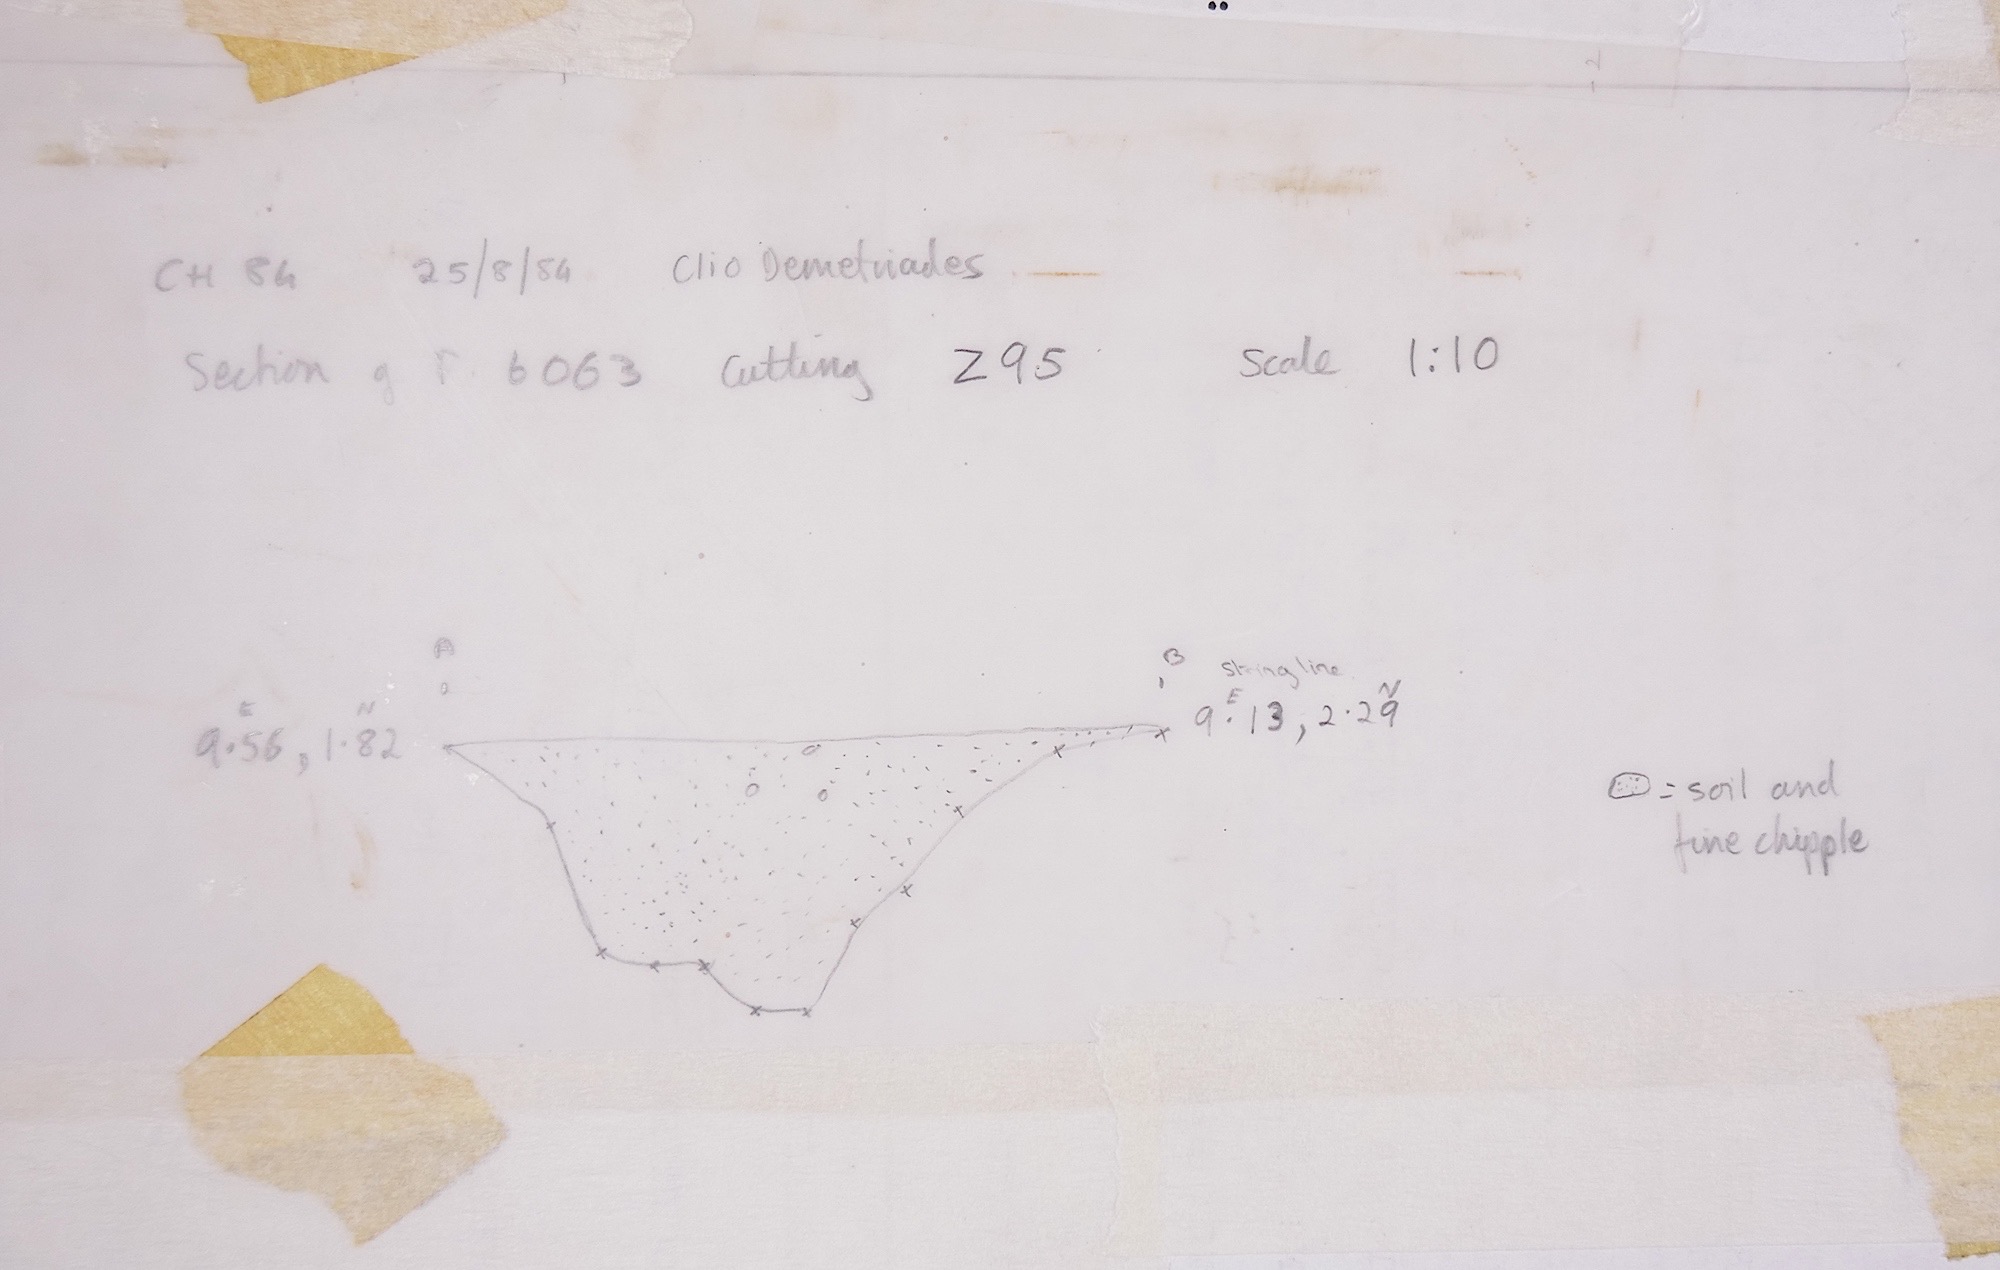 - 2
CH 84 25/8/84 Clio Demetriades
Section of F. 6063 Cutting Z95 Scale 1:10
A
B stringline
E N
9.56, 1.82
E N
9.13, 2.29
= soil and
fine chipple